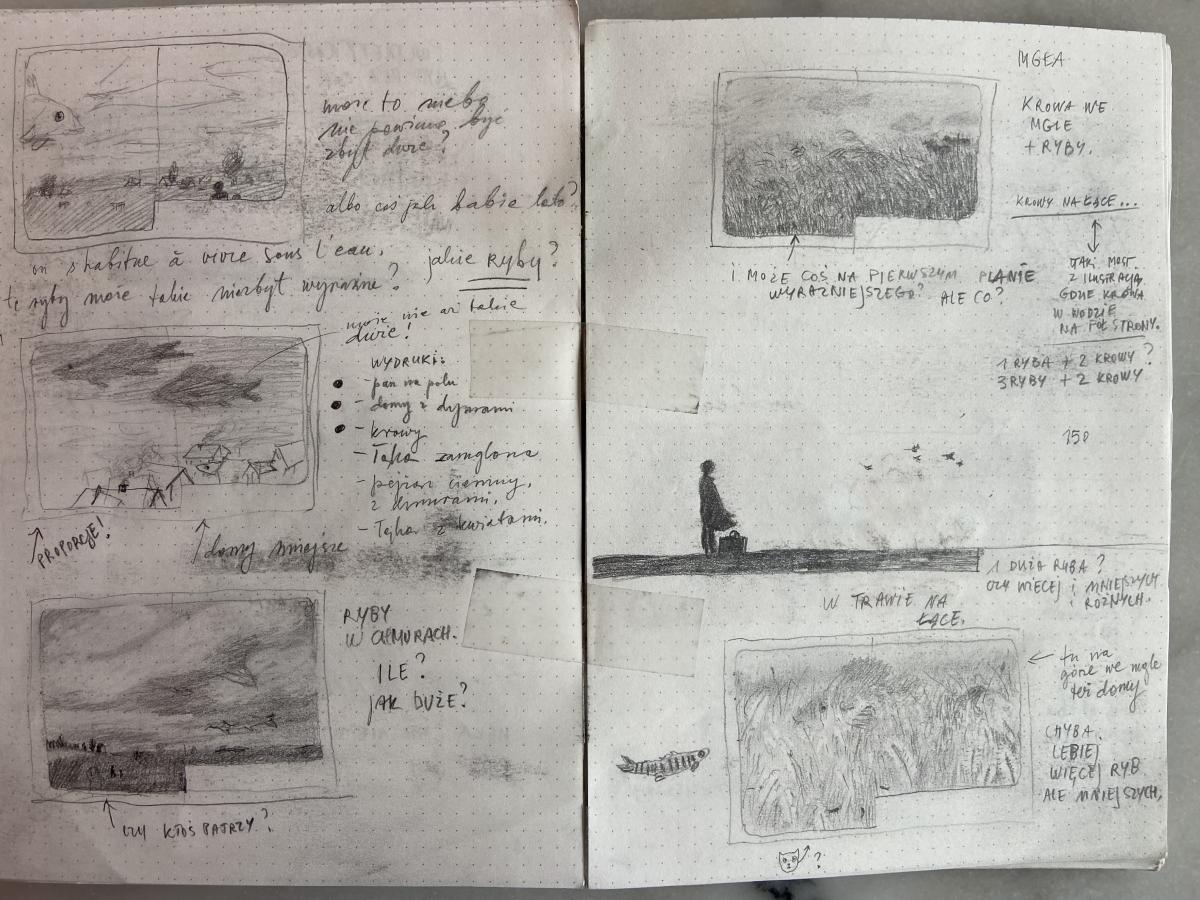 może to niebo
nie powinno być
zbyt duże?
albo coś jak babie lato?
on s'habitue à vivre sous l'eau.
jakie RYBY?
te ryby może takie niezbyt wyraźne?
może nie aż takie
duże!
WYDRUKI:
- pan na polu
- domy z dymami
- krowy
- Łąka zamglona
- pejzaż ciemny,
z chmurami.
- Łąka z kwiatami.
PROPORCJE!
domy mniejsze
RYBY
W CHMURACH.
ILE?
JAK DUŻE?
CZY KTOŚ PATRZY?
MGŁA
KROWA WE
MGLE
+ RYBY.
KROWY NA ŁĄCE...
TAKI MOST.
Z ILUSTRACJĄ,
GDZIE KROWA
W WODZIE
NA PÓŁ STRONY.
I MOŻE COŚ NA PIERWSZYM PLANIE
WYRAŹNIEJSZEGO? ALE CO?
1 RYBA + 2 KROWY?
3 RYBY + 2 KROWY
150
1 DUŻA RYBA?
CZY WIĘCEJ I MNIEJSZYCH
I RÓŻNYCH.
W TRAWIE NA
ŁĄCE.
tu na
górze we mgle
też domy
CHYBA
LEPIEJ
WIĘCEJ RYB
ALE MNIEJSZYCH.
?